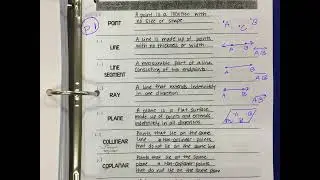 P 1
POINT
A point is a location with
no size or shape.
A
B
LINE
A line is made up of points
with no thickness or width.
LINE
SEGMENT
A measurable part of a line
consisting of two endpoints.
A B
RAY
A line that extends indefinitely
in one direction.
A B
PLANE
A plane is a flat surface
made up of points and extends
indefinitely in all directions.
COLLINEAR
Points that lie on the same
line * Non-collinear - points
that do not lie on the same line
COPLANAR
Points that lie on the same
plane * Non-Coplanar - points
that do not lie on the same plane